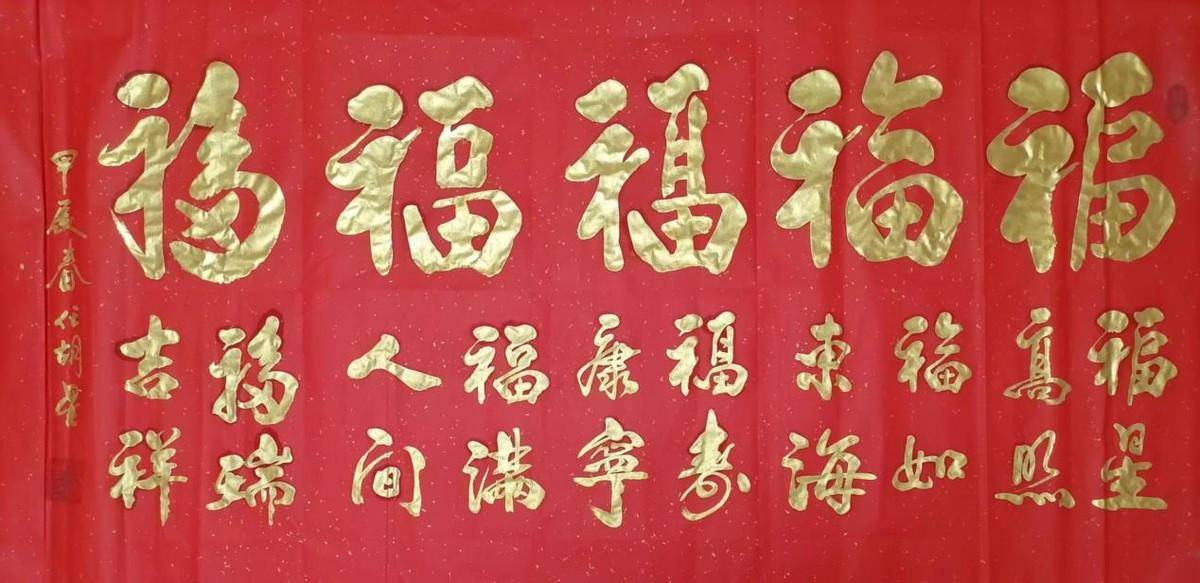 福福福福福
福星
高照
福如
东海
福寿
康宁
福满
人间
福瑞
吉祥
甲辰春 胡